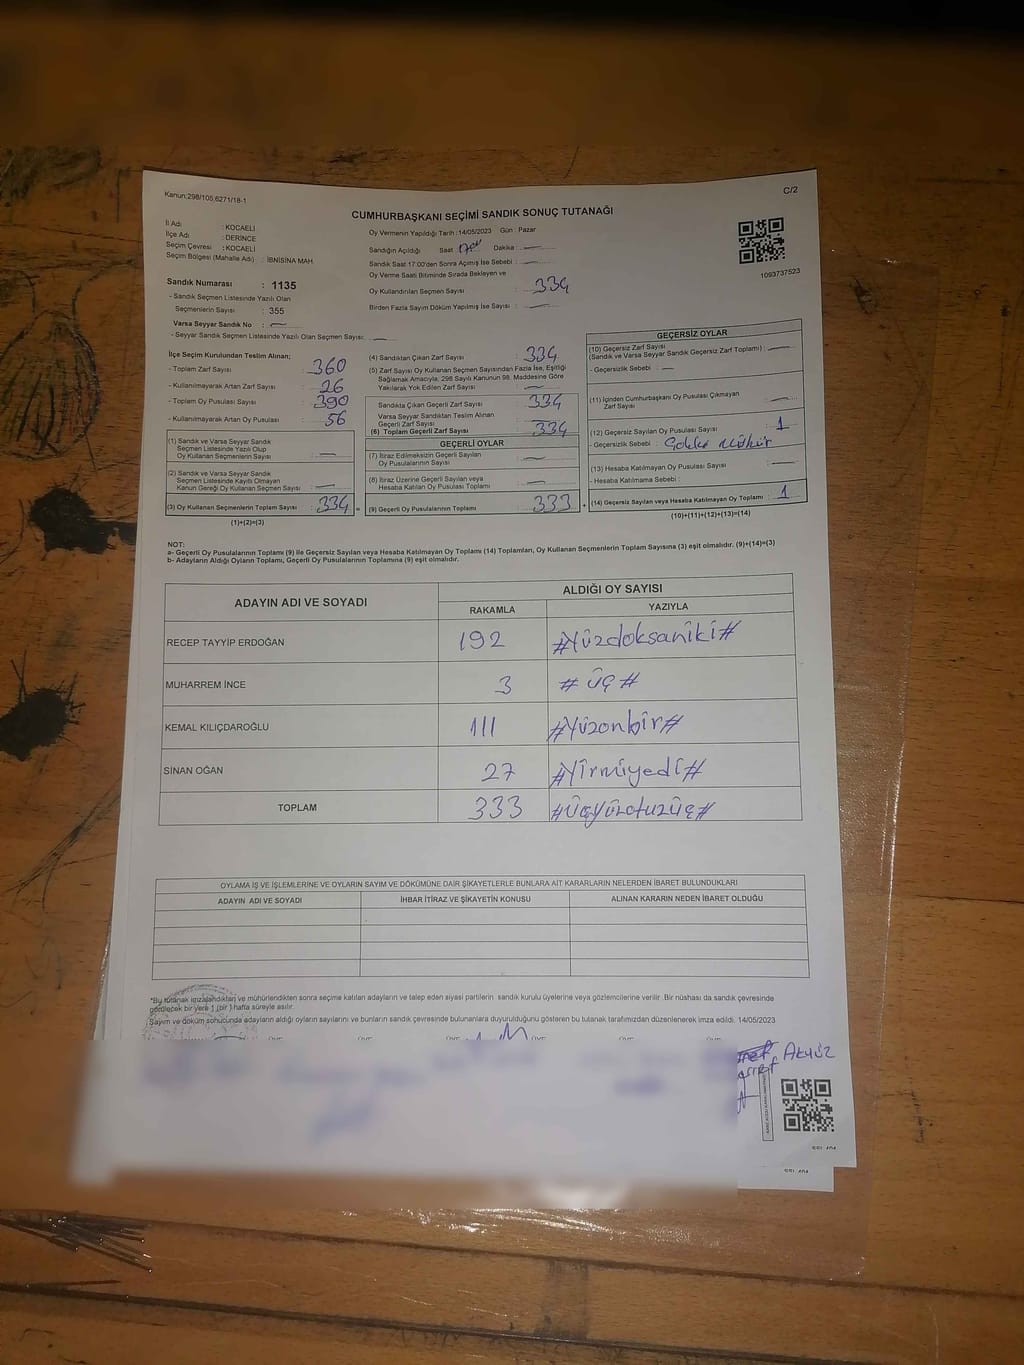 Kanun:298/105,6271/18-1
C/2
CUMHURBAŞKANI SEÇİMİ SANDIK SONUÇ TUTANAĞI
İl Adı : KOCAELİ
İlçe Adı : DERİNCE
Seçim Çevresi : KOCAELİ
Seçim Bölgesi (Mahalle Adı) : İBNİSİNA MAH.
Oy Vermenin Yapıldığı Tarih :14/05/2023 Gün : Pazar
Sandığın Açıldığı Saat Dakika :
Sandık Saat 17:00'den Sonra Açılmış İse Sebebi :
Oy Verme Saati Bitiminde Sırada Bekleyen ve
Oy Kullandırılan Seçmen Sayısı : 334
Birden Fazla Sayım Döküm Yapılmış İse Sayısı :
1093737523
Sandık Numarası : 1135
- Sandık Seçmen Listesinde Yazılı Olan
Seçmenlerin Sayısı : 355
Varsa Seyyar Sandık No :
- Seyyar Sandık Seçmen Listesinde Yazılı Olan Seçmen Sayısı:
İlçe Seçim Kurulundan Teslim Alınan;
- Toplam Zarf Sayısı : 360
- Kullanılmayarak Artan Zarf Sayısı : 26
- Toplam Oy Pusulası Sayısı : 390
- Kullanılmayarak Artan Oy Pusulası : 56
(1) Sandık ve Varsa Seyyar Sandık
Seçmen Listesinde Yazılı Olup
Oy Kullanan Seçmenlerin Sayısı :
(2) Sandık ve Varsa Seyyar Sandık
Seçmen Listesinde Kayıtlı Olmayan
Kanun Gereği Oy Kullanan Seçmen Sayısı :
(3) Oy Kullanan Seçmenlerin Toplam Sayısı : 334 =
(1)+(2)=(3)
(4) Sandıktan Çıkan Zarf Sayısı : 334
(5) Zarf Sayısı Oy Kullanan Seçmen Sayısından Fazla İse, Eşitliği
Sağlamak Amacıyla, 298 Sayılı Kanunun 98. Maddesine Göre
Yakılarak Yok Edilen Zarf Sayısı :
Sandıkta Çıkan Geçerli Zarf Sayısı : 334
Varsa Seyyar Sandıktan Teslim Alınan
Geçerli Zarf Sayısı :
(6) Toplam Geçerli Zarf Sayısı : 334
GEÇERLİ OYLAR
(7) İtiraz Edilmeksizin Geçerli Sayılan
Oy Pusulalarının Sayısı :
(8) İtiraz Üzerine Geçerli Sayılan veya
Hesaba Katılan Oy Pusulası Toplamı :
(9) Geçerli Oy Pusulalarının Toplamı : 333 +
GEÇERSİZ OYLAR
(10) Geçersiz Zarf Sayısı
(Sandık ve Varsa Seyyar Sandık Geçersiz Zarf Toplamı) :
- Geçersizlik Sebebi :
(11) İçinden Cumhurbaşkanı Oy Pusulası Çıkmayan
Zarf Sayısı :
(12) Geçersiz Sayılan Oy Pusulası Sayısı : 1
- Geçersizlik Sebebi : Mühür
(13) Hesaba Katılmayan Oy Pusulası Sayısı :
- Hesaba Katılmama Sebebi :
(14) Geçersiz Sayılan veya Hesaba Katılmayan Oy Toplamı : 1
(10)+(11)+(12)+(13)=(14)
NOT:
a- Geçerli Oy Pusulalarının Toplamı (9) ile Geçersiz Sayılan veya Hesaba Katılmayan Oy Toplamı (14) Toplamları, Oy Kullanan Seçmenlerin Toplam Sayısına (3) eşit olmalıdır. (9)+(14)=(3)
b- Adayların Aldığı Oyların Toplamı, Geçerli Oy Pusulalarının Toplamına (9) eşit olmalıdır.
ADAYIN ADI VE SOYADI
ALDIĞI OY SAYISI
RAKAMLA YAZIYLA
RECEP TAYYİP ERDOĞAN 192 #Yüzdoksaniki#
MUHARREM İNCE 3 #üç#
KEMAL KILIÇDAROĞLU 111 #Yüzonbir#
SİNAN OĞAN 27 #Yirmiyedi#
TOPLAM 333 #Üçyüzotuzüç#
OYLAMA İŞ VE İŞLEMLERİNE VE OYLARIN SAYIM VE DÖKÜMÜNE DAİR ŞİKAYETLERLE BUNLARA AİT KARARLARIN NELERDEN İBARET BULUNDUKLARI
ADAYIN ADI VE SOYADI İHBAR İTİRAZ VE ŞİKAYETİN KONUSU ALINAN KARARIN NEDEN İBARET OLDUĞU
*Bu tutanak imzalandıktan ve mühürlendikten sonra seçime katılan adayların ve talep eden siyasi partilerin sandık kurulu üyelerine veya gözlemcilerine verilir. Bir nüshası da sandık çevresinde
görülecek bir yere 1 (bir) hafta süreyle asılır.
Sayım ve döküm sonucunda adayların aldığı oyların sayılarını ve bunların sandık çevresinde bulunanlara duyurulduğunu gösteren bu tutanak tarafımızdan düzenlenerek imza edildi. 14/05/2023